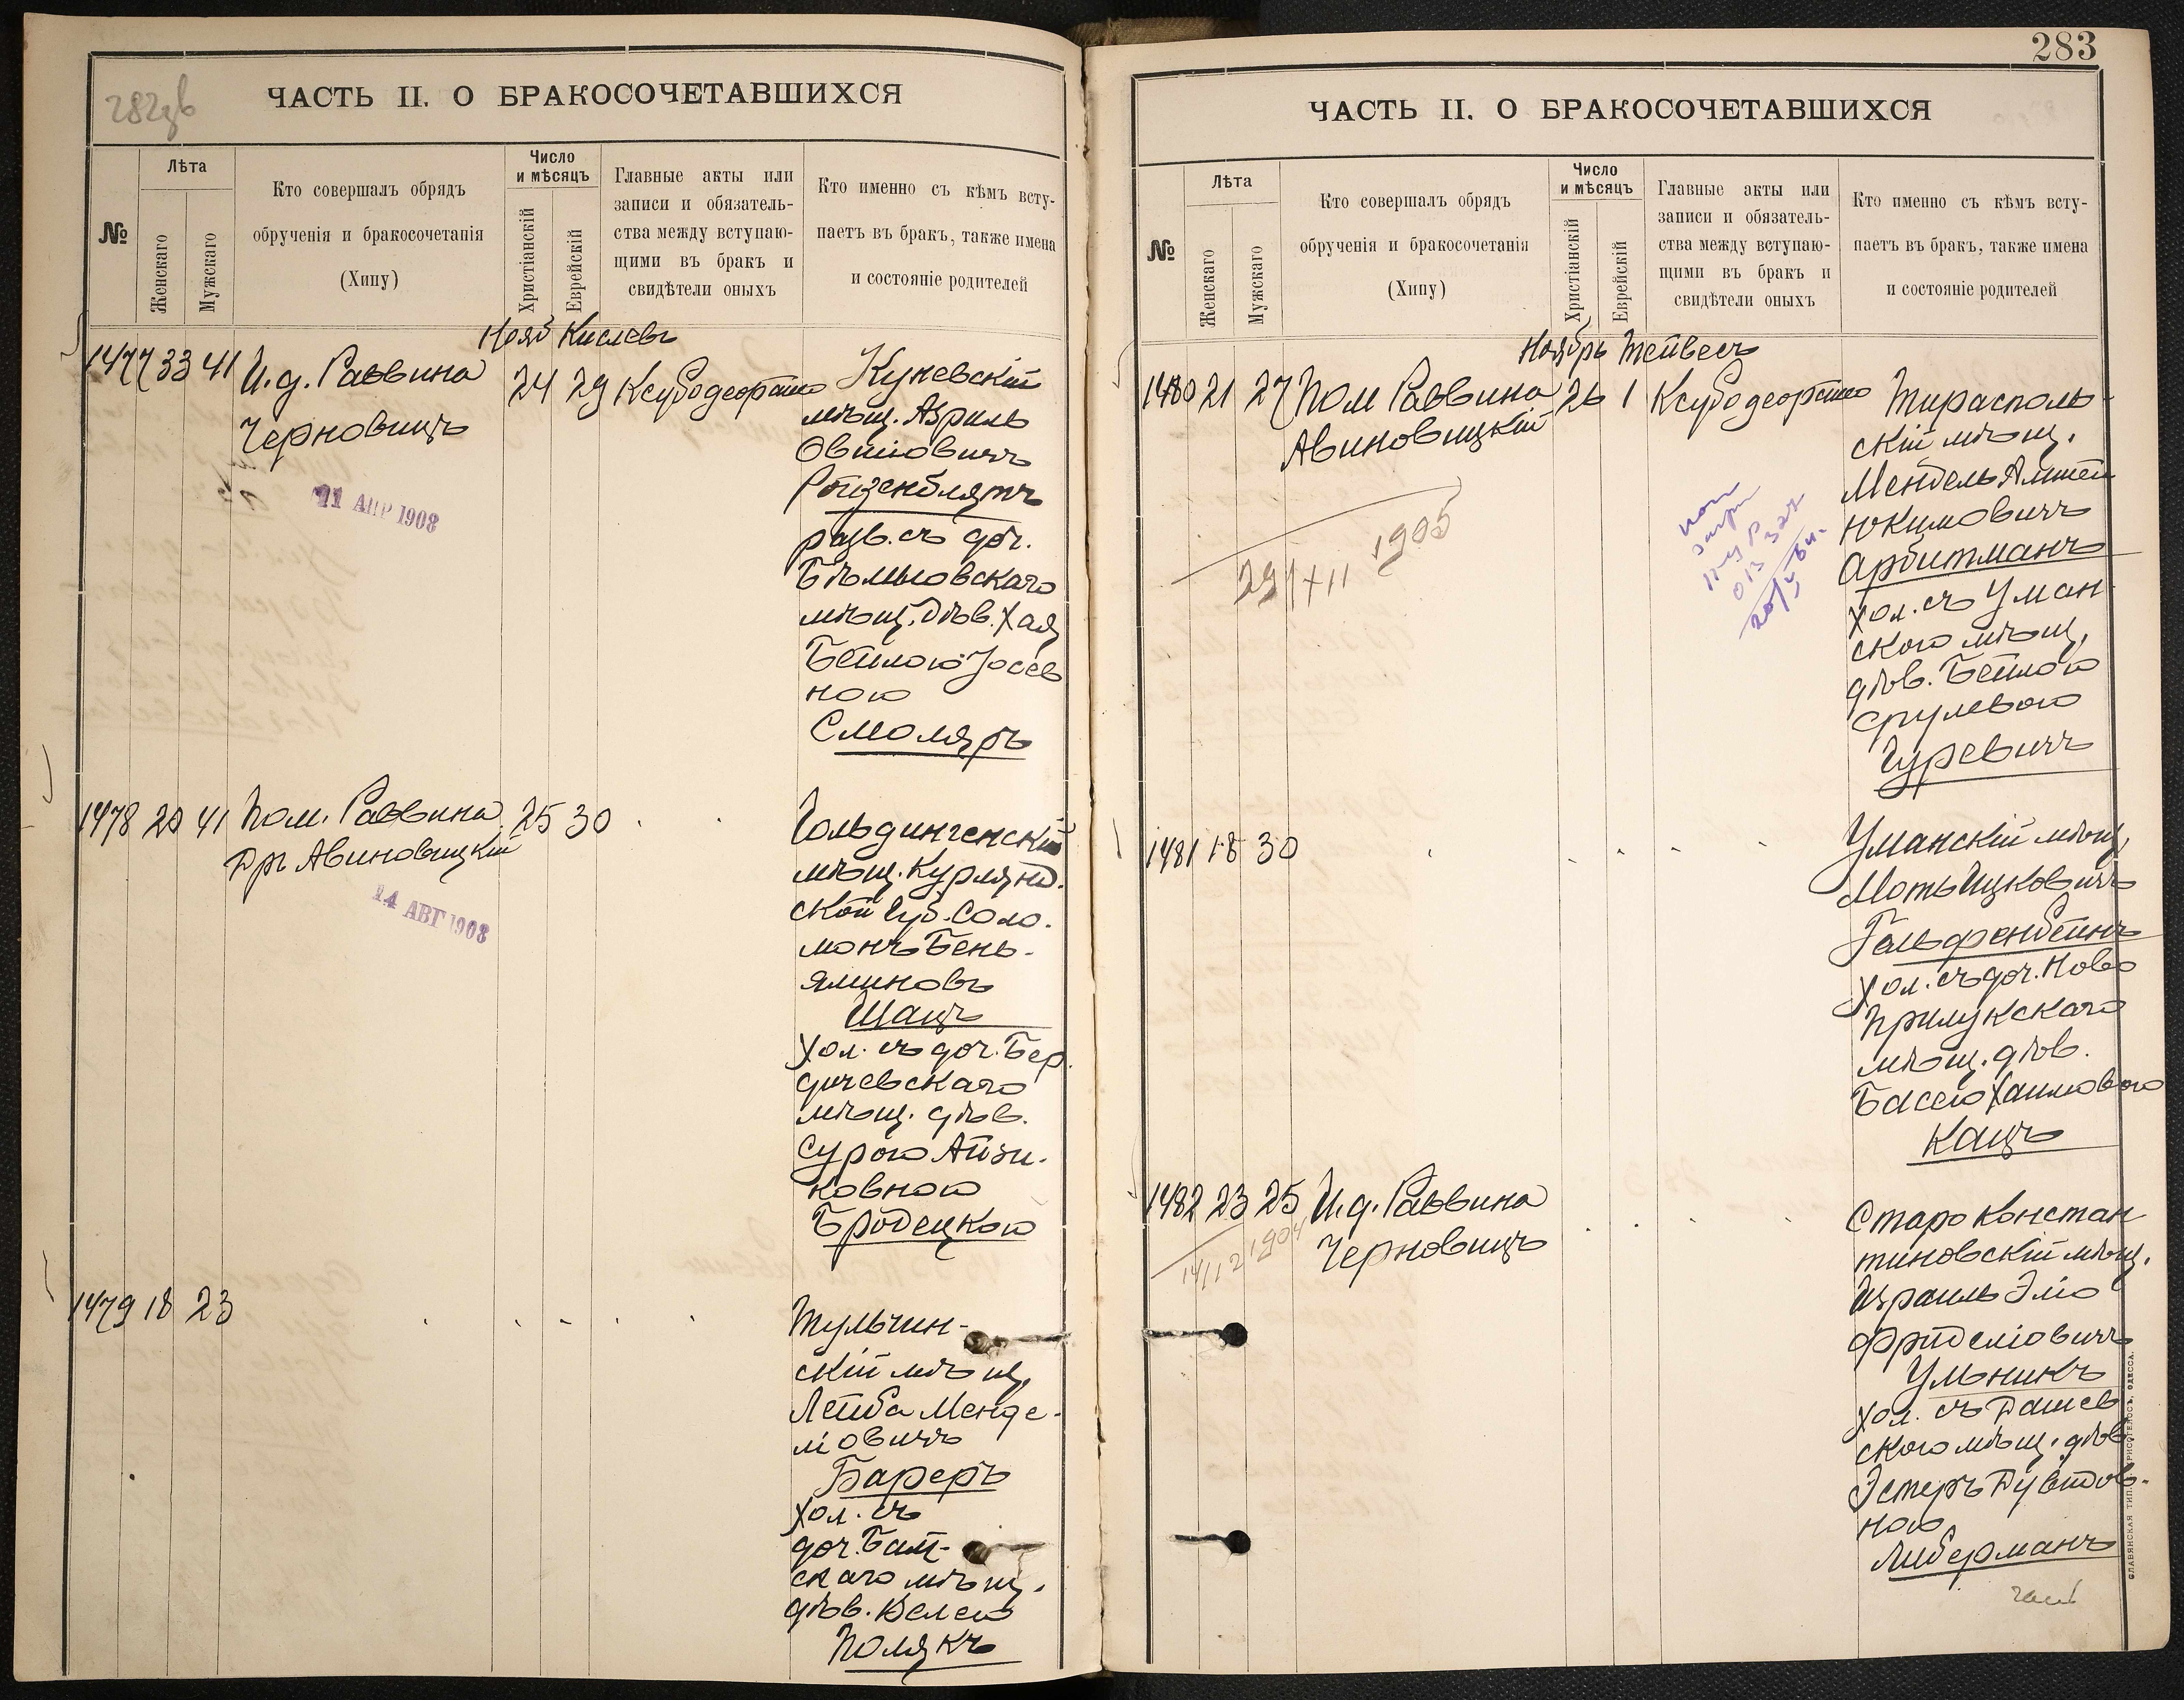 282 зв
ЧАСТЬ II. О БРАКОСОЧЕТАВШИХСЯ
№
Лѣта
Женскаго
Мужскаго
Кто совершалъ обрядъ
обрученія и бракосочетанія
(Хипу)
Число
и мѣсяцъ
Христіанскій
Еврейскій
Главные акты или
записи и обязатель-
ства между вступаю-
щими въ бракъ и
свидѣтели оныхъ
Кто именно съ кѣмъ всту-
паетъ въ бракъ, также имена
и состояніе родителей
Нояб Кислевъ
1477 33 41 И. д. Раввина
Черновицъ
24 29
Куневскій
мѣщ. Азриль
Овшіовичъ
Ройзенблятъ
разв. съ доч.
мѣщ. дѣв. Хая
Бейлою Іосев
ною
Смоляръ
11 АПР 1908
1478 20 41 Пом. Раввина 25 30
Дръ Авиновицкій
14 АВГ 1908
Гольдингенскій
мѣщ. Курлянд.
ской Губ. Соло-
монъ Бень-
яминовъ
Шацъ
Хол. съ доч. Бер
дичевскаго
мѣщ. дѣв.
Сурою Айзи-
ковною
Бродецкою
1479 18 23
Тульчин-
скій мѣщ.
Лейба Менде-
ліовичъ
Бареръ
Хол. съ
доч.
скаго мѣщ.
дѣв. Велею
Полякъ
283
ЧАСТЬ II. О БРАКОСОЧЕТАВШИХСЯ
№
Лѣта
Женскаго
Мужскаго
Кто совершалъ обрядъ
обрученія и бракосочетанія
(Хипу)
Число
и мѣсяцъ
Христіанскій
Еврейскій
Главные акты или
записи и обязатель-
ства между вступаю-
щими въ бракъ и
свидѣтели оныхъ
Кто именно съ кѣмъ всту-
паетъ въ бракъ, также имена
и состояніе родителей
Ноябрь Тейвесъ
1480 21 27 Пом Раввина 26 1
Авиновицкій
29/XII 1905
Тирасполь-
скій мѣщ.
Мендель
Юкимовичъ
Арбитманъ
Хол. съ Уман
ского мѣщ.
дѣв. Бейлою
Срулевою
Гуревичъ
1481 18 30
Уманскій мѣщ.
Моть Ицковичъ
Гальфенбейнъ
Хол. съ доч. Ново
Прилукскаго
мѣщ. дѣв.
Басею Хаимовою
Кацъ
1482 23 25 И. д. Раввина
Черновицъ
14/12 1904
Старо Констан
тиновскій мѣщ.
Израиль Эліо
Фройделіовичъ
Ульникъ
Хол. съ Дашев
ского мѣщ. дѣв
Эстеръ Дувидов-
ною
Либерманъ